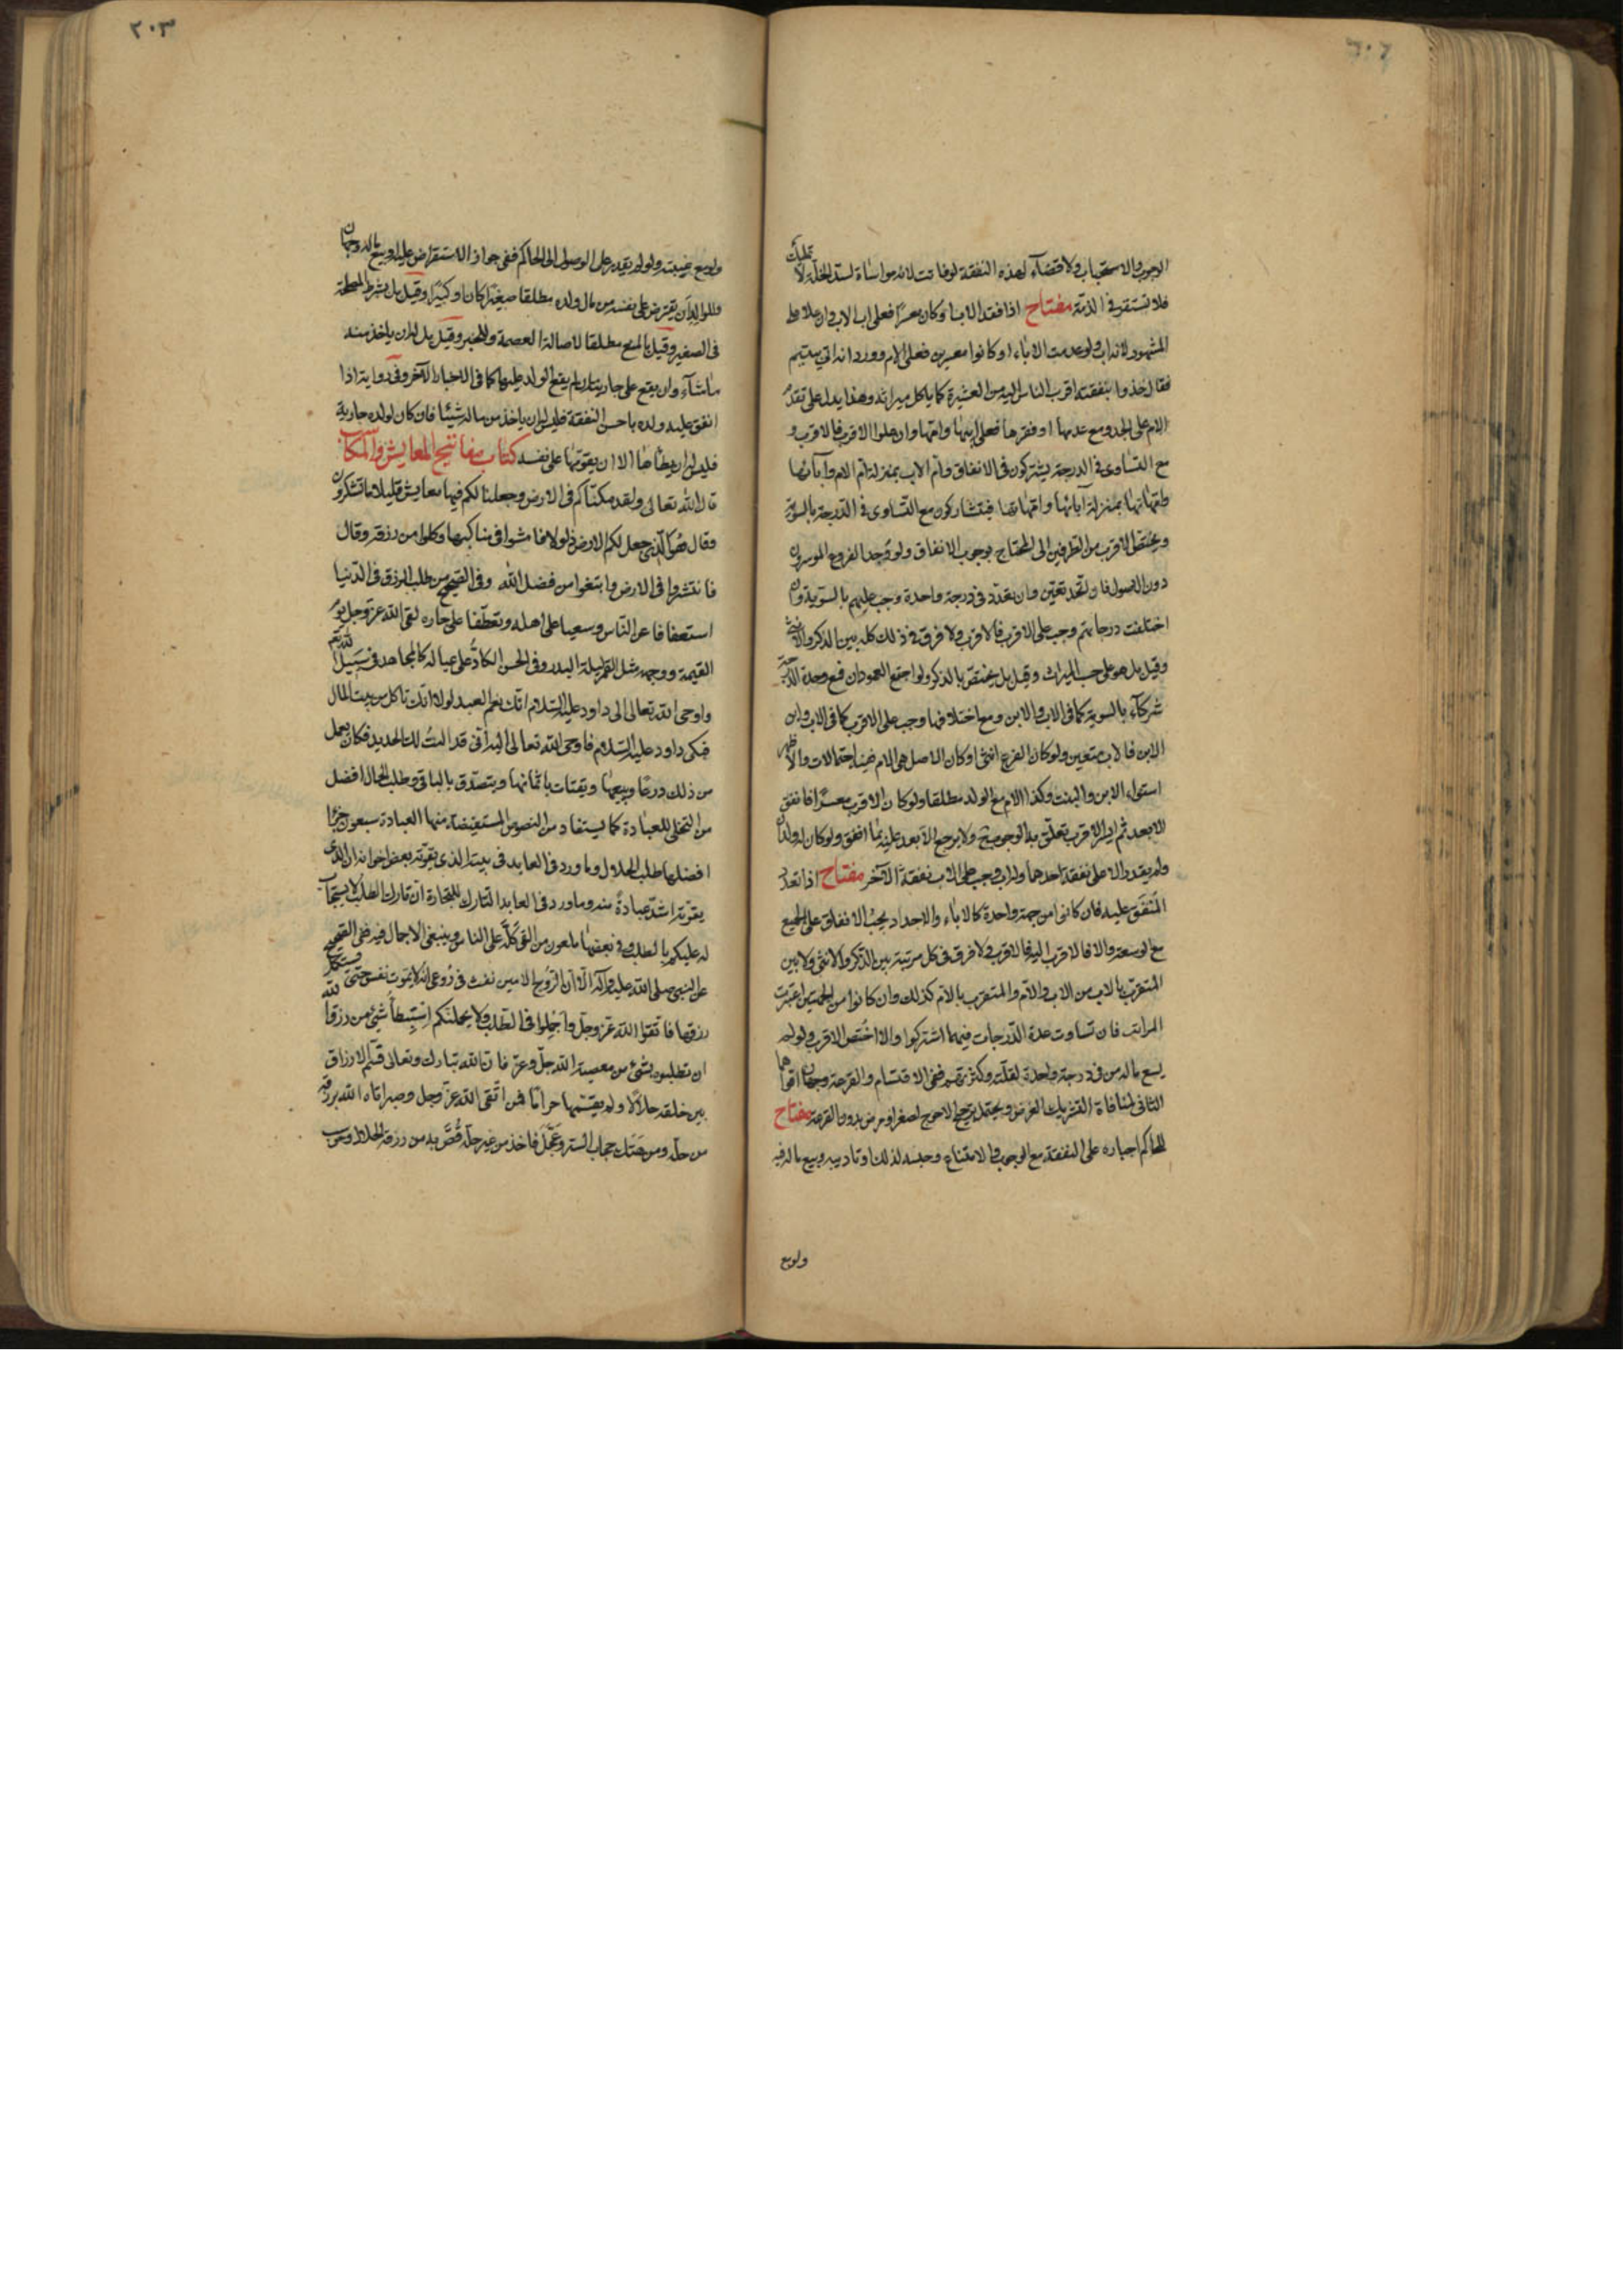 الوجوب والاستحباب ولا قضاء لهذه النفقة لو فاتت لانه مواساة لسد الخلة لا تمليك
فلا تستقر في الذمة مفتاح اذا فقد الاب او كان معسرا فعلى اب الاب وان علا على
المشهور لانه اب ولو عدمت الاباء او كانوا معسرين فعلى الام وورد انه اتي بيتيم
فقال خذوا بنفقته اقرب الناس اليه من العشيرة كما ياكل ميراثه وهذا يدل على تقدم
الام على الجد ومع عدمها او فقرها فعلى ابيها وامها وان علوا الاقرب فالاقرب و
مع التساوى في الدرجة يشتركون في الانفاق وام الاب بمنزلة ام الام وآبائها
وامهاتها بمنزلة آبائها وامهاتها فيتشاركون مع التساوى في الدرجة بالسوية
ويختص الاقرب من الطرفين الى المحتاج بوجوب الانفاق ولو وجد الفروع الموسرون
دون الاصول فان اتحد تعين وان تعدد في درجة واحدة وجب عليهم بالسوية وان
اختلفت درجاتهم وجب على الاقرب فالاقرب ولا فرق في ذلك كله بين الذكر والانثى
وقيل بل هو على حسب الميراث وقيل بل يختص بالذكر ولو اجتمع العمودان فمع وحدة الدرجة
شركاء بالسوية كما في الاب والابن ومع اختلافها وجب على الاقرب كما في الاب وابن
الابن فالاب متعين ولو كان الفرع انثى او كان الاصل هي الام ففيه احتمالات والاظهر
استواء الابن والبنت وكذا الام مع الولد مطلقا ولو كان الاقرب معسرا فانفق
الابعد ثم ايسر الاقرب تعلق به الوجوب ح ولا يرجع الابعد عليه بما انفق ولو كان له ولدان
ولم يقدر الا على نفقة احدهما وله اب وجب على الاب نفقة الآخر مفتاح اذا تعدد
المنفق عليه فان كانوا من جهة واحدة كالاباء والاجداد يجب الانفاق على الجميع
مع الوسعة والا فالاقرب اليه فالاقرب ولا فرق في كل مرتبة بين الذكر والانثى ولا بين
المتقرب بالاب من الاب والام والمتقرب بالام كذلك وان كانوا من الجهتين اعتبرت
المراتب فان تساوت عدة الدرجات فيهما اشتركوا والا اختص الاقرب ولو لم
يسع ماله من في درجة واحدة لقلته وكثرتهم ففي الاقتسام والقرعة وجهان اقواهما
الثاني لمنافاة التشريك الغرض ويحتمل ترجيح الاحوج لصغر او مرض بدون القرعة مفتاح
للحاكم اجباره على النفقة مع الوجوب والامتناع وحبسه لذلك وتاديبه وبيع ماله فيه
ولو مع
٢٠٣
ولو مع غيبته ولو لم يقدر على الوصول الى الحاكم ففي جواز الاستقراض عليه او بيع ماله وجهان
وللوالد ان يقترض على نفسه من مال ولده مطلقا صغيرا كان او كبيرا وقيل بل بشرط المصلحة
في الصغير وقيل بالمنع مطلقا لاصالة العصمة وللخبر وقيل بل له ان ياخذ منه
ماشاء وان يقع على جاريته ان لم يقع الولد عليها كما في الاخبار الآخر وفي رواية اذا
انفق عليه ولده باحسن النفقة فليس له ان ياخذ من ماله شيئا فان كان لولده جارية
فليس له ان يطاها الا ان يقومها على نفسه كتاب مفاتيح المعايش والمكاسب
قال الله تعالى ولقد مكناكم في الارض وجعلنا لكم فيها معايش قليلا ما تشكرون
وقال هو الذي جعل لكم الارض ذلولا فامشوا في مناكبها وكلوا من رزقه وقال
فانتشروا في الارض وابتغوا من فضل الله وفي الصحيح من طلب الرزق في الدنيا
استعفافا عن الناس وسعيا على اهله وتعطفا على جاره لقى الله عز وجل يوم
القيمة ووجهه مثل القمر ليلة البدر وفي الحسن الكاد على عياله كالمجاهد في سبيل الله
واوحى الله تعالى الى داود عليه السلام انك نعم العبد لولا انك تاكل من بيت المال
فبكى داود عليه السلام فاوحى الله تعالى اليه انى قد النت لك الحديد فكان يعمل
من ذلك درعا ويبيعها ويقتات باثمانها ويتصدق بالباقي وطلب الحلال افضل
من التخلى للعبادة كما يستفاد من النصوص المستفيضة منها العبادة سبعون جزءا
افضلها طلب الحلال وما ورد في العابد في بيته الذي يقوته بعض اخوانه ان الذي
يقوته اشد عبادة منه وما ورد في العابد التارك للتجارة ان تارك الطلب لا يستجاب
له عليكم بالطلب وفي بعضها ملعون من القى كله على الناس وينبغي الاجمال فيه ففي الصحيح
عن النبي صلى الله عليه وآله الا ان الروح الامين نفث في روعي انه لا يموت نفس حتى تستكمل
رزقها فاتقوا الله عز وجل واجملوا في الطلب ولا يحملنكم استبطاء شئ من رزق الله
ان تطلبوه بشئ من معصية الله جل وعز فان الله تبارك وتعالى قسم الارزاق
بين خلقه حلالا ولم يقسمها حراما فمن اتقى الله عز وجل وصبر اتاه الله برزقه
من حله ومن هتك حجاب الستر وعجل فاخذه من غير حله قص به من رزقه الحلال وحوسب